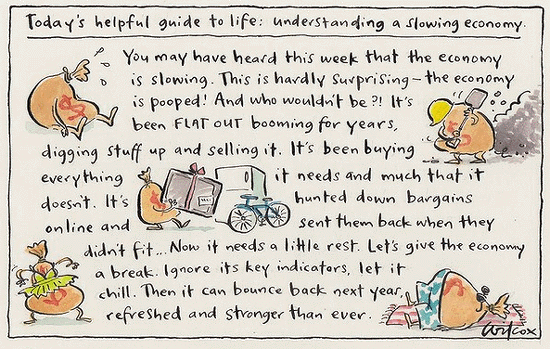 Today's helpful guide to life: understanding a slowing economy.
You may have heard this week that the economy
is slowing. This is hardly surprising – the economy
is pooped! And who wouldn't be?! It's
been FLAT OUT booming for years,
digging stuff up and selling it. It's been buying
everything it needs and much that it
doesn't. It's hunted down bargains
online and sent them back when they
didn't fit... Now it needs a little rest. Let's give the economy
a break. Ignore its key indicators, let it
chill. Then it can bounce back next year,
refreshed and stronger than ever.
Wilcox